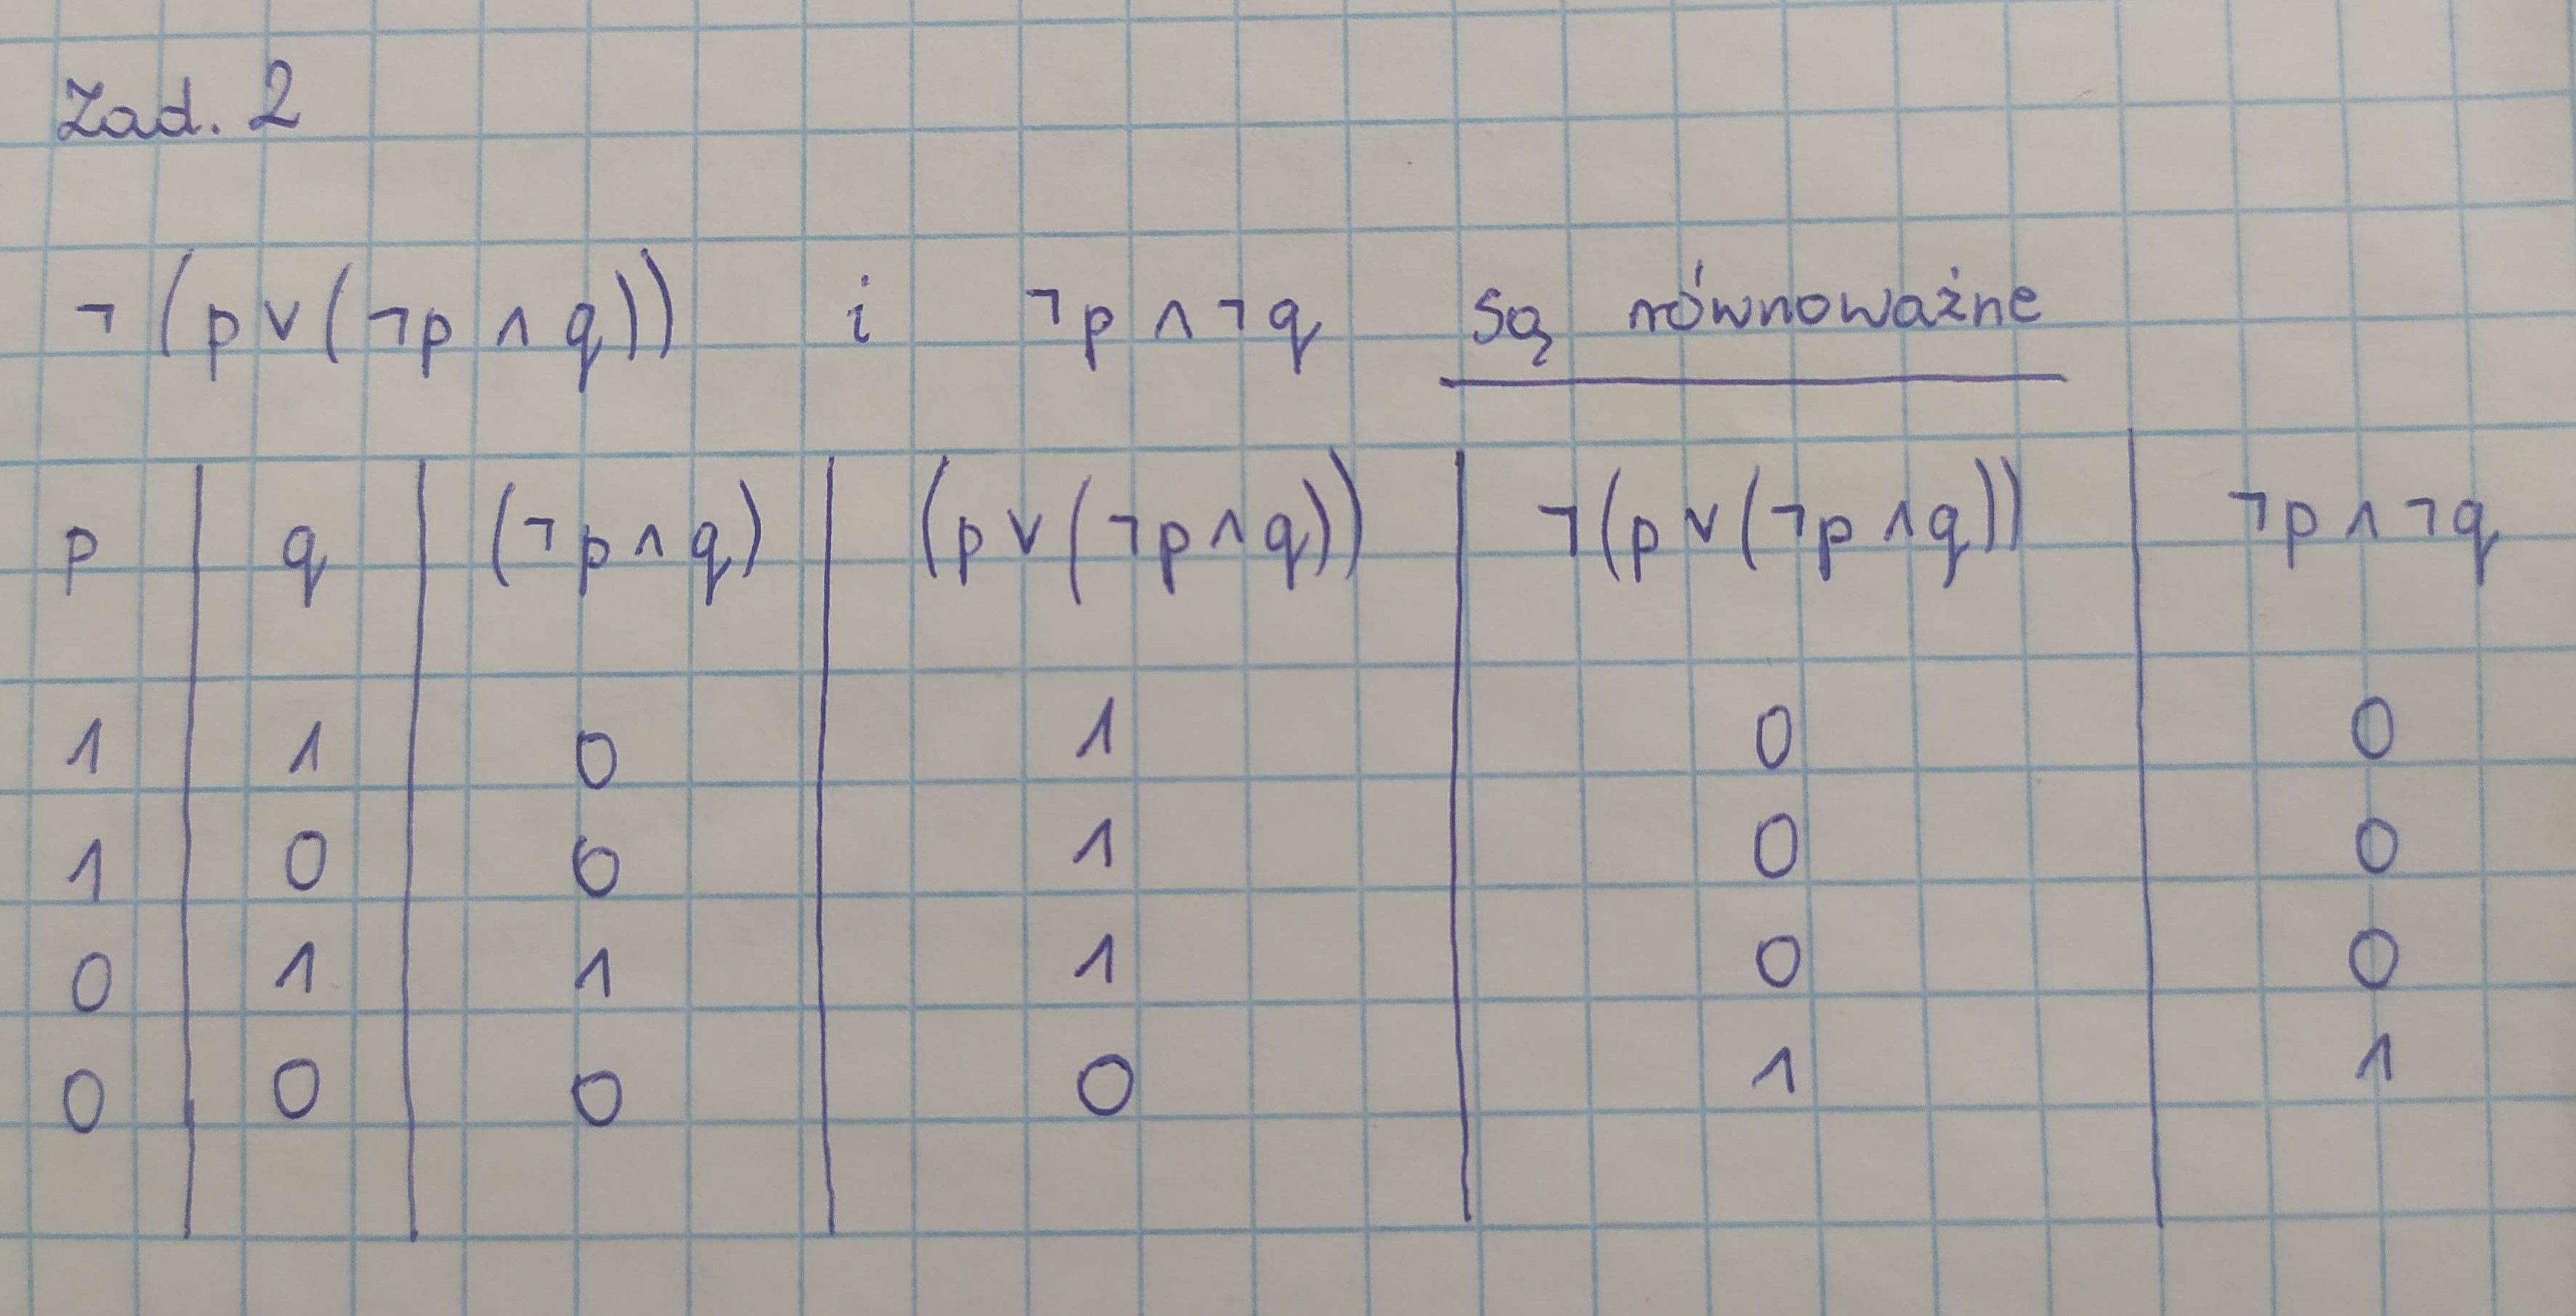 Zad. 2
¬(p∨(¬p∧q)) i ¬p∧¬q są równoważne
p q (¬p∧q) (p∨(¬p∧q)) ¬(p∨(¬p∧q)) ¬p∧¬q
1 1 0 1 0 0
1 0 0 1 0 0
0 1 1 1 0 0
0 0 0 0 1 1